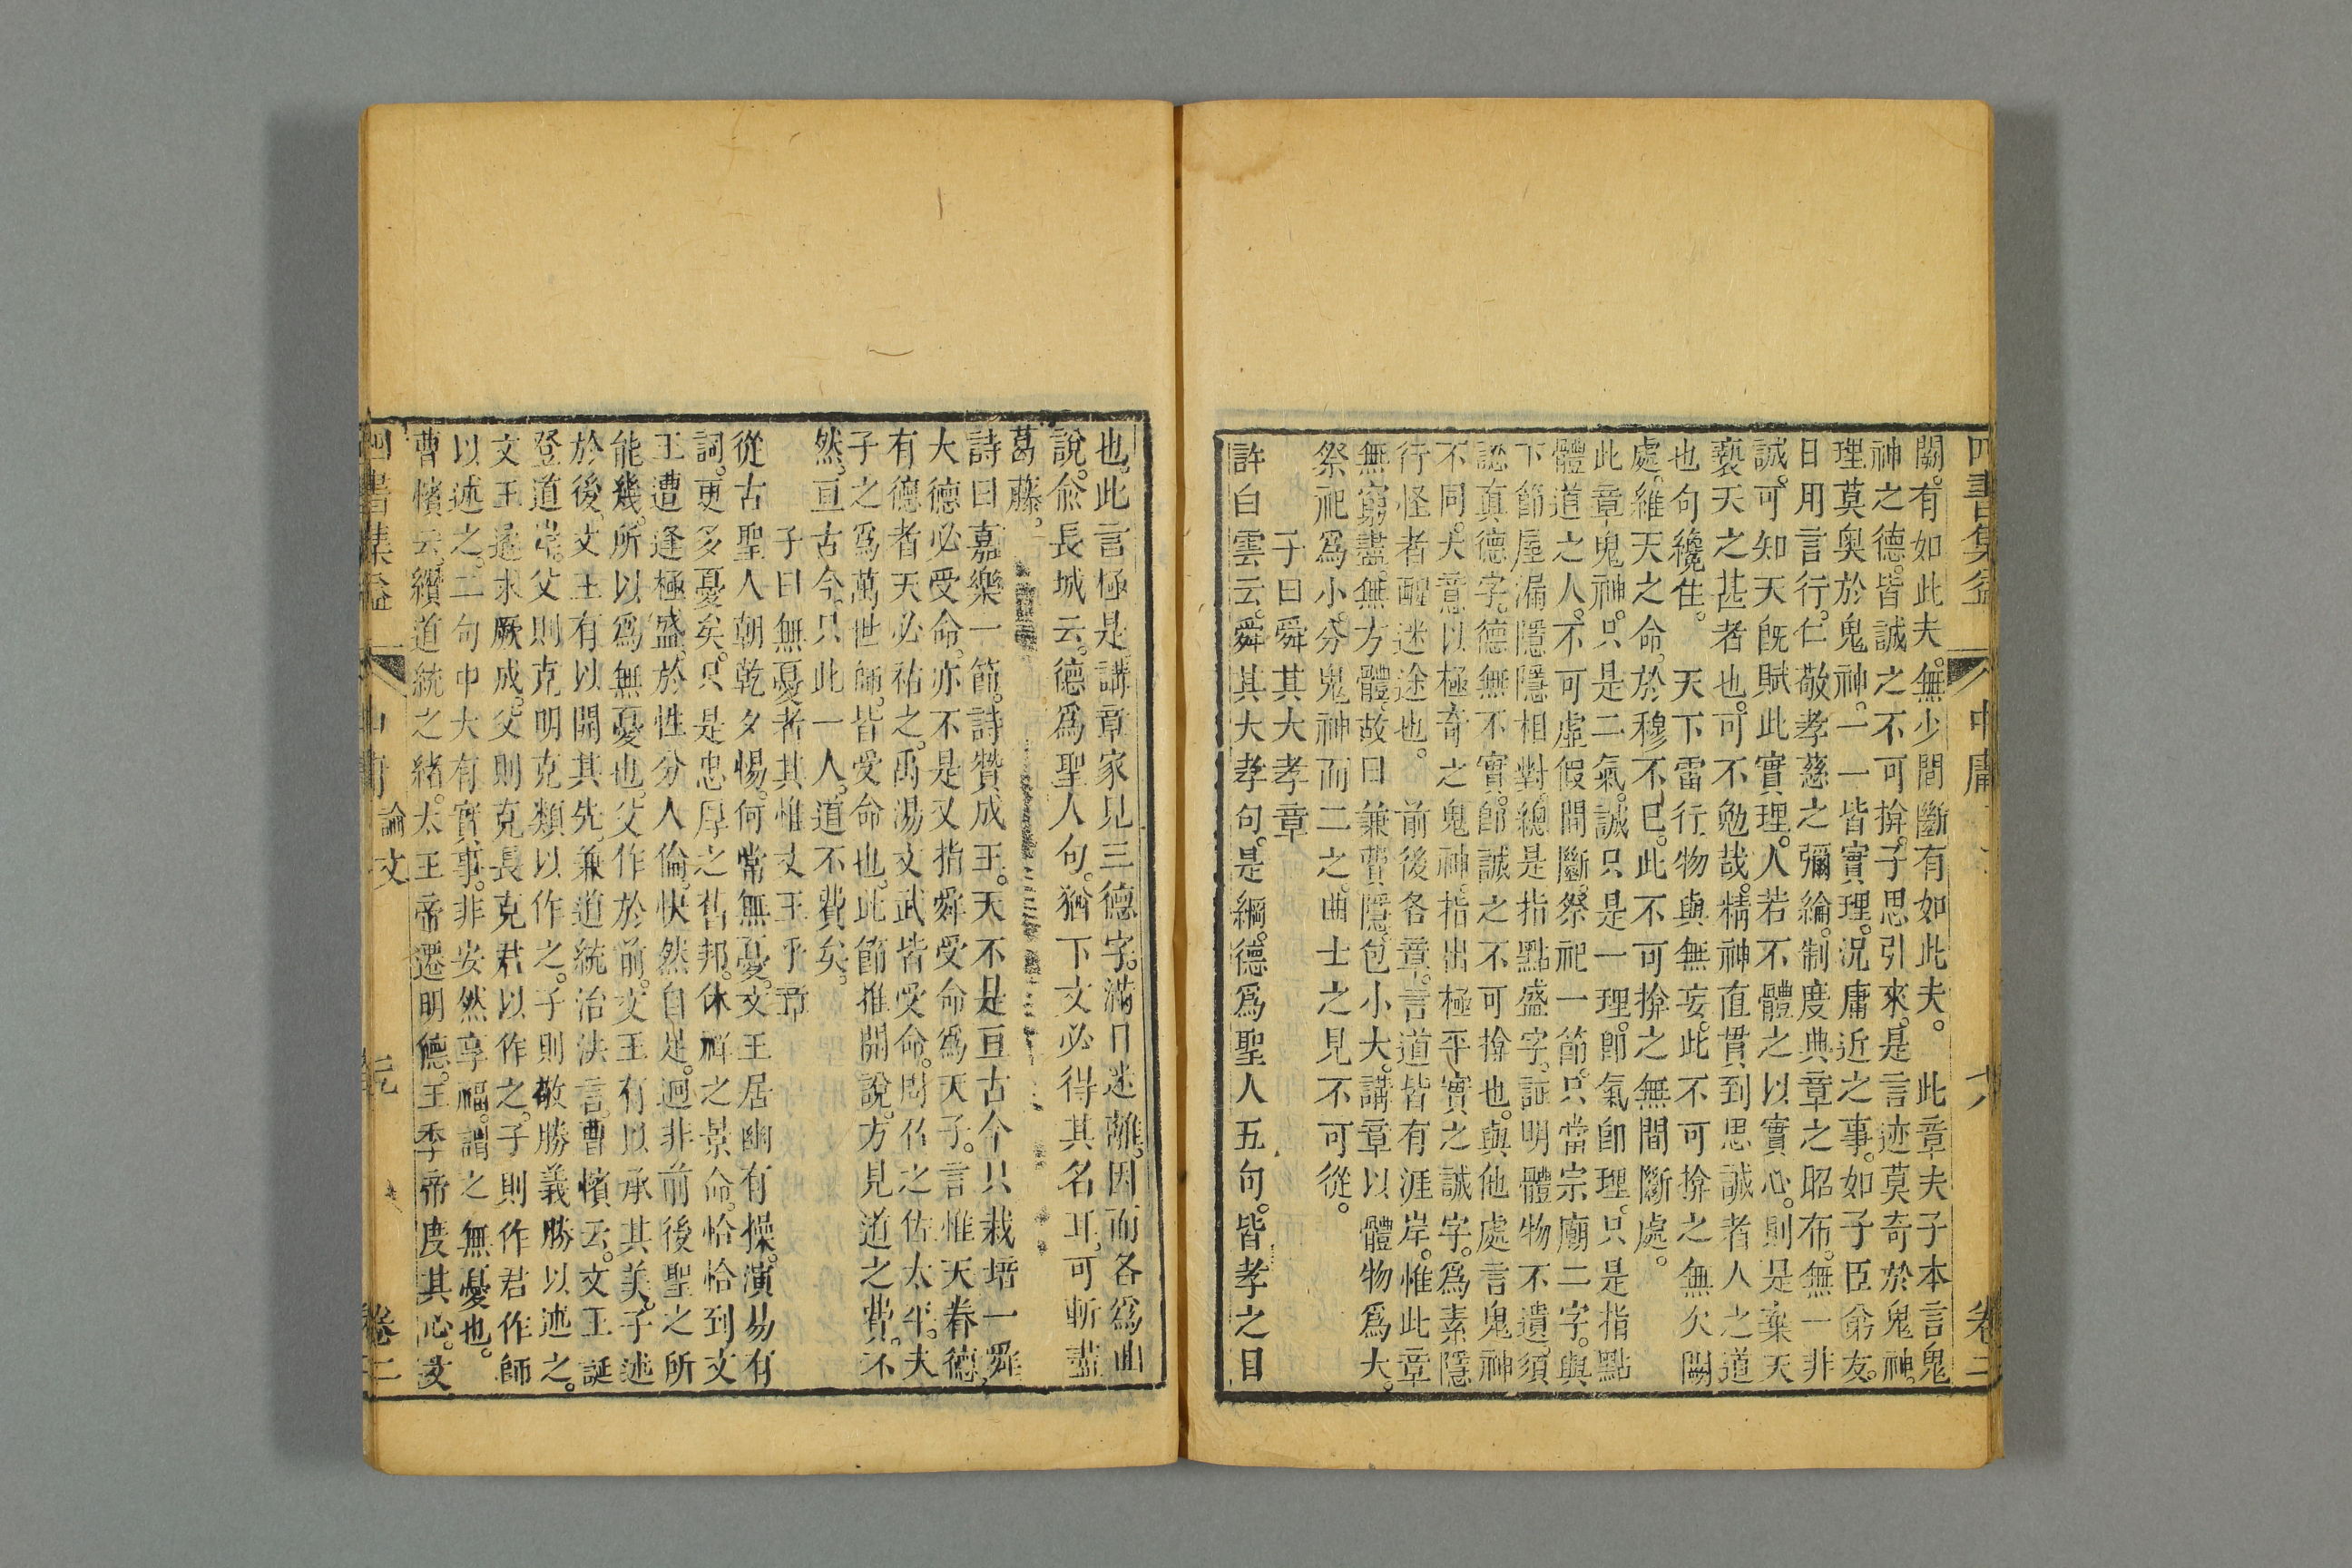 四書集益 中庸 卷二
闕。有如此夫。無少間斷有如此夫。 此章夫子本言鬼
神之德。皆誠之不可揜。子思引來。是言迹莫奇於鬼神。
理莫奥於鬼神。一一皆實理。况庸近之事。如子臣弟友。
日用言行。仁敬孝慈之彌綸。制度典章之昭布。無一非
誠。可知天旣賦此實理。人若不體之以實心。則是棄天
褻天之甚者也。可不勉哉。精神直貫到思誠者人之道
也句纔住。 天下雷行。物與無妄。此不可揜之無欠闕
處。維天之命。於穆不已。此不可揜之無間斷處。
此章鬼神。只是二氣。誠只是一理。卽氣卽理。只是指點
體道之人。不可虛假間斷。祭祀一節。只當宗廟二字。與
下節屋漏隱隱相對。總是指點盛字。証明體物不遺。須
認眞德字。德無不實。卽誠之不可揜也。與他處言鬼神
不同。大意以極奇之鬼神。指出極平實之誠字。爲素隱
行怪者醒迷途也。 前後各章。言道皆有涯岸。惟此章
無窮盡。無方體。故曰兼費隱。包小大。講章以體物爲大。
祭祀爲小。分鬼神而二之。曲士之見不可從。
子曰舜其大孝章
許白雲云。舜其大孝句。是綱。德爲聖人五句。皆孝之目
也。此言極是。講章家見三德字。滿目迷離。因而各爲曲
說。俞長城云。德爲聖人句。猶下文必得其名耳。可斬盡
葛藤。
詩曰嘉樂一節。詩贊成王。天不是亘古今只栽培一舜。
大德必受命。亦不是又指舜受命爲天子。言惟天眷德。
有德者天必祐之。禹湯文武皆受命。周召之佐太平。夫
子之爲萬世師。皆受命也。此節推開說。方見道之費。不
然。亘古今。只此一人。道不費矣。
子曰無憂者其惟文王乎章
從古聖人朝乾夕惕。何常無憂。文王居幽有操。演易有
詞。更多憂矣。只是忠厚之舊邦。休祥之景命。恰恰到文
王遭逢極盛。於性分人倫。快然自足。迥非前後聖之所
能幾。所以爲無憂也。父作於前。文王有以承其美。子述
於後。文王有以開其先。兼道統治法言。曹櫝云。文王誕
登道岸。父則克明克類以作之。子則敬勝義勝以述之。
文王遹求厥成。父則克長克君以作之。子則作君作師
以述之。二句中大有實事。非安然享福。謂之無憂也。
曹櫝云。纘道統之緒。太王帝遷明德。王季帝度其心。文
四書集益 中庸 論文 卷二